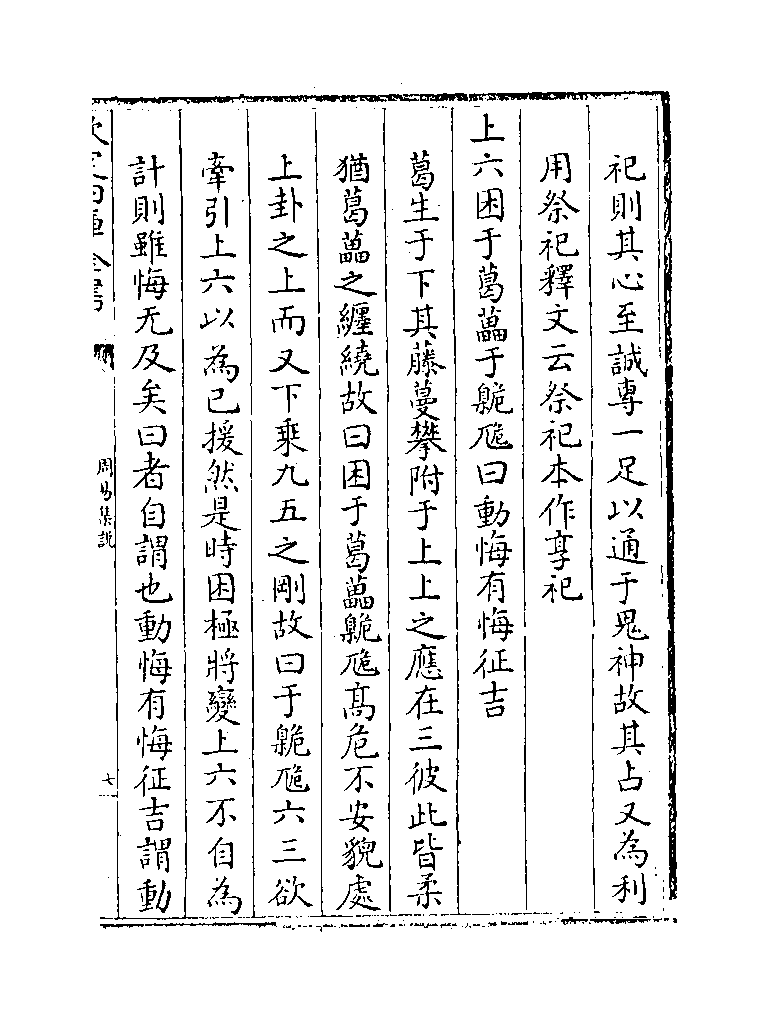 祀則其心至誠專一足以通于鬼神故其占又為利
用祭祀釋文云祭祀本作享祀
上六困于葛藟于臲卼曰動悔有悔征吉
葛生于下其藤蔓攀附于上上之應在三彼此皆柔
猶葛藟之纏繞故曰困于葛藟臲卼髙危不安貌處
上卦之上而又下乘九五之剛故曰于臲卼六三欲
牽引上六以為己援然是時困極將變上六不自為
計則雖悔无及矣曰者自謂也動悔有悔征吉謂動
欽定四庫全書
周易集說
七